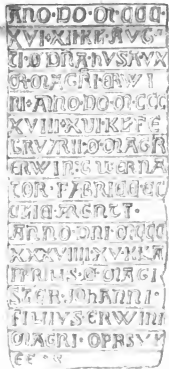 ANO·DO·M·CCC·
XVI·XII·KL·AUG
TI·O·DNA·HUSA·UX
OR·MAGRI·ERWI
NI·ANO·DO·M·CCC
XVIII·XVI·KL·FE
BRUARII·O·MAGR
ERWIN·GUBERNA
TOR·FABRICE·EC
CLIE·ARGENT·
ANNO·DNI·M·CCC
XXXVIIII·XV·KLA
PRILIS·O·MAGI
STER·IOHANNI·
FILIUS·ERWINI
MAGRI·OPRS·